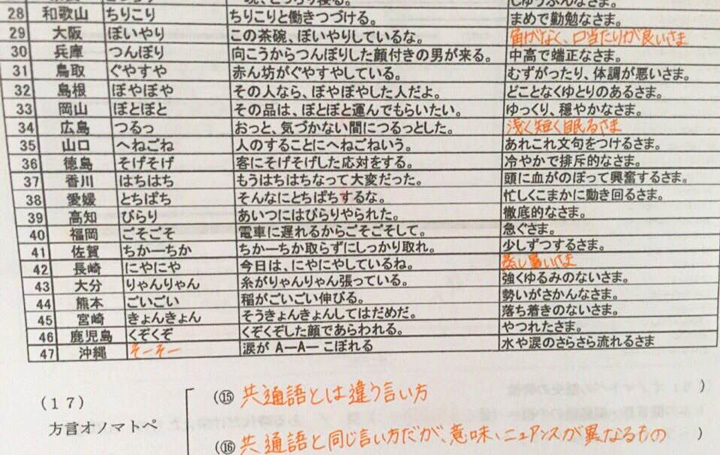 じゅうぶんなさま。
28 和歌山 ちりこり ちりこりと働きつづける。 まめで勤勉なさま。
29 大阪 ぼいやり この茶碗、ぼいやりしているな。 角がなく、口当たりが良いさま
30 兵庫 つんぼり 向こうからつんぼりした顔付きの男が来る。 中高で端正なさま。
31 鳥取 ぐやすや 赤ん坊がぐやすやしている。 むずがったり、体調が悪いさま。
32 島根 ぼやぼや その人なら、ぼやぼやした人だよ。 どことなくゆとりのあるさま。
33 岡山 ぼとぼと その品は、ぼとぼと運んでもらいたい。 ゆっくり、穏やかなさま。
34 広島 つるっ おっと、気づかない間につるっとした。 浅く短く眠るさま
35 山口 へねごね 人のすることにへねごねいう。 あれこれ文句をつけるさま。
36 徳島 そげそげ 客にそげそげした応対をする。 冷やかで排斥的なさま。
37 香川 はちはち もうはちはちなって大変だった。 頭に血がのぼって興奮するさま。
38 愛媛 とちぱち そんなにとちぱちするな。 忙しくこまかに動き回るさま。
39 高知 びらり あいつにはびらりやられた。 徹底的なさま。
40 福岡 ごそごそ 電車に遅れるからごそごそして。 急ぐさま。
41 佐賀 ちかーちか ちかーちか取らずにしっかり取れ。 少しずつするさま。
42 長崎 にやにや 今日は、にやにやしているね。 蒸し暑いさま
43 大分 りゃんりゃん 糸がりゃんりゃん張っている。 強くゆるみのないさま。
44 熊本 ごいごい 稲がごいごい伸びる。 勢いがさかんなさま。
45 宮崎 きょんきょん そうきょんきょんしてはだめだ。 落ち着きのないさま。
46 鹿児島 くぞくぞ くぞくぞした顔であらわれる。 やつれたさま。
47 沖縄 そーそー 涙が A―A― こぼれる 水や涙のさらさら流れるさま
(17)
方言オノマトペ
(⑮ 共通語とは違う言い方 )
(⑯ 共通語と同じ言い方だが、意味、ニュアンスが異なるもの )